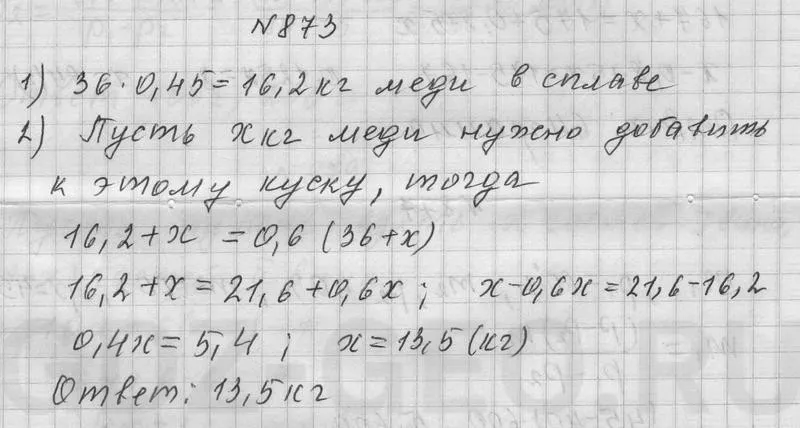 №873
1) 36·0,45=16,2кг меди в сплаве
2) Пусть x кг меди нужно добавить
к этому куску, тогда
16,2+x =0,6 (36+x)
16,2+x=21,6+0,6x; x-0,6x=21,6-16,2
0,4x=5,4; x=13,5(кг)
Ответ: 13,5кг